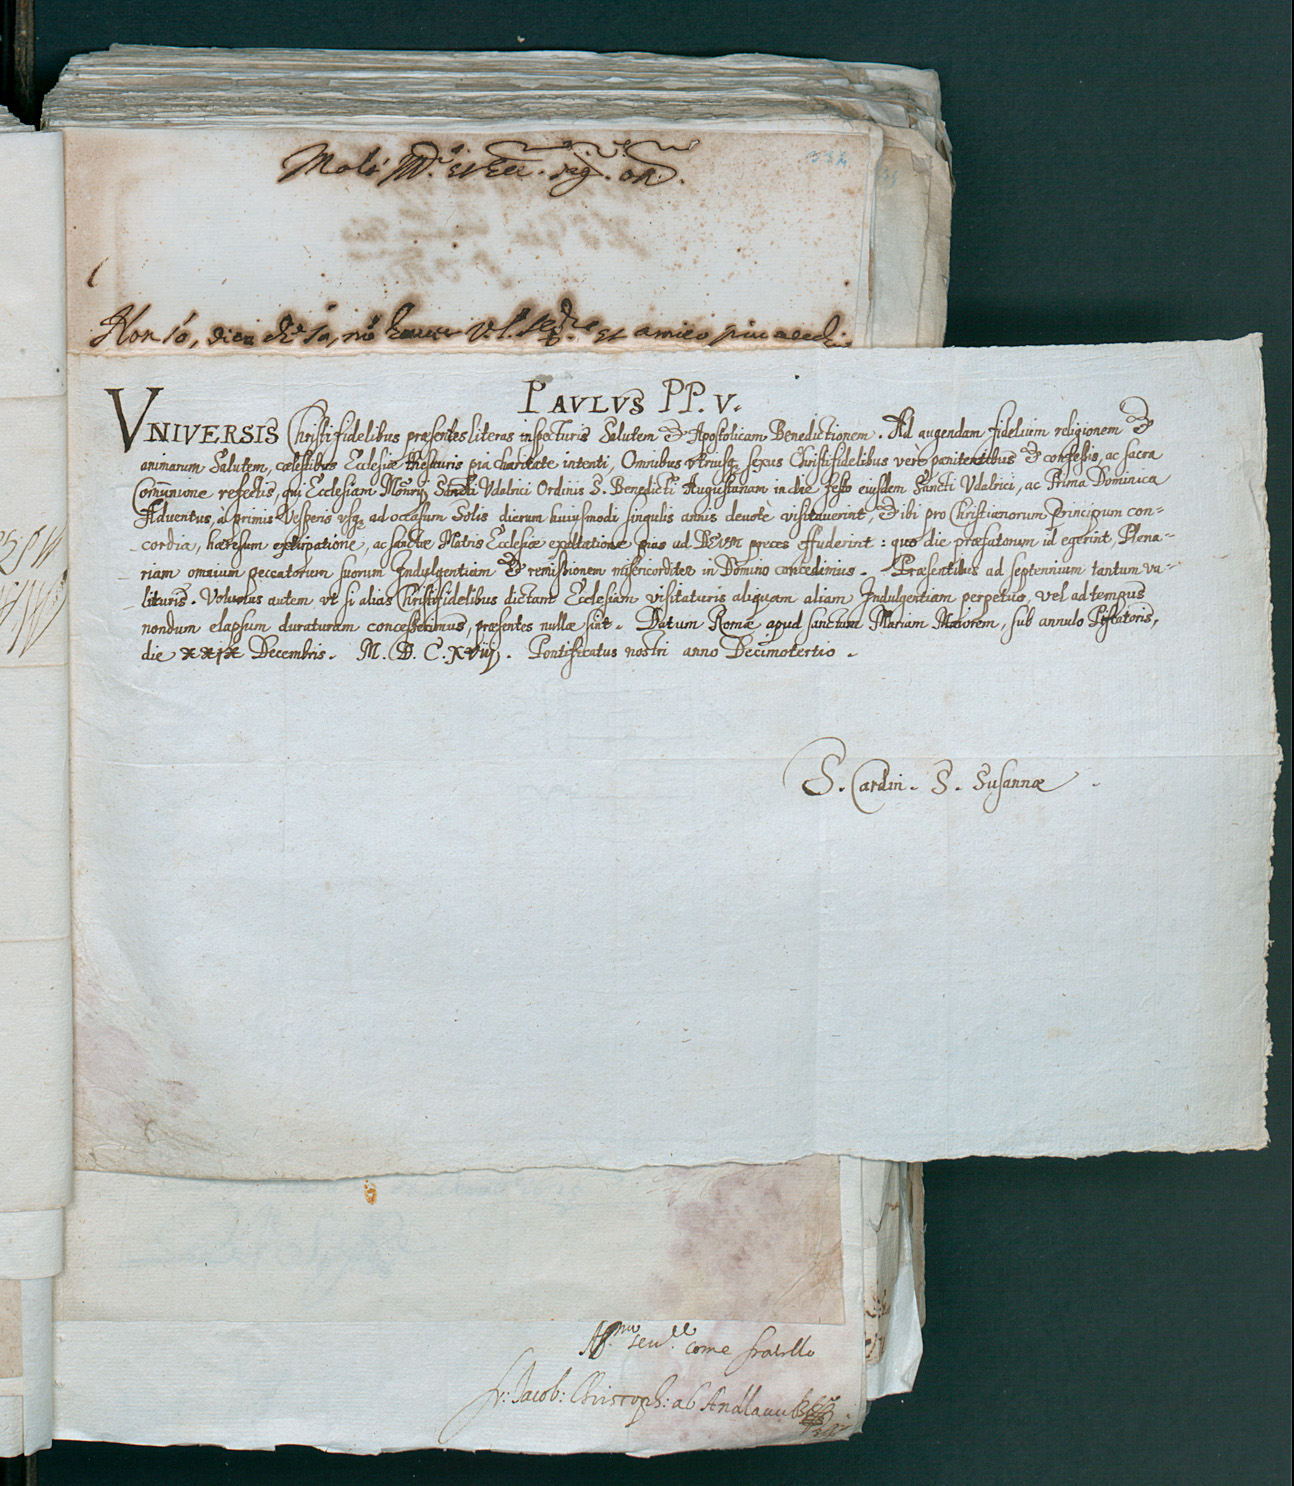 Molt M.to et Ecc. sig. on.
Non so, dica che sa, no V.S. et amico piu
PAVLVS PP. V.
VNIVERSIS Christifidelibus præsentes literas inspecturis Salutem & Apostolicam Benedictionem. Ad augendam fidelium religionem &
animarum Salutem, cœlestibus Ecclesiæ thesauris pia charitate intenti, Omnibus vtriusq; sexus Christifidelibus verè pœnitentibus & confessis, ac sacra
Com̃unione refectis, qui Ecclesiam Mon̄rij Sancti Vdalrici Ordinis S. Benedicti Augustanam in die festo eiusdem Sancti Vdalrici, ac Prima Dominica
Aduentus, à primis Vesperis vsq; ad occasum Solis dierum huiusmodi singulis annis deuotè visitauerint, & ibi pro Christianorum Principum con-
cordia, hæresum extirpatione, ac sanctæ Matris Ecclesiæ exaltatione pias ad DEVM preces effuderint: quo die præfatorum id egerint, Plena-
riam omnium peccatorum suorum Indulgentiam & remissionem misericorditer in Domino concedimus. Præsentibus ad septennium tantum va-
lituris. Volumus autem vt si alias Christifidelibus dictam Ecclesiam visitaturis aliquam aliam Indulgentiam perpetuo, vel ad tempus
nondum elapsum duraturam concesserimus, præsentes nullæ sint. Datum Romæ apud sanctam Mariam Maiorem, sub annulo Piscatoris,
die xxix Decembris. M. D. C. XVIJ. Pontificatus nostri anno Decimotertio.
S. Cardin. S. Susannæ
come fratello
fr: Jacob: Christoph: ab Andlauu